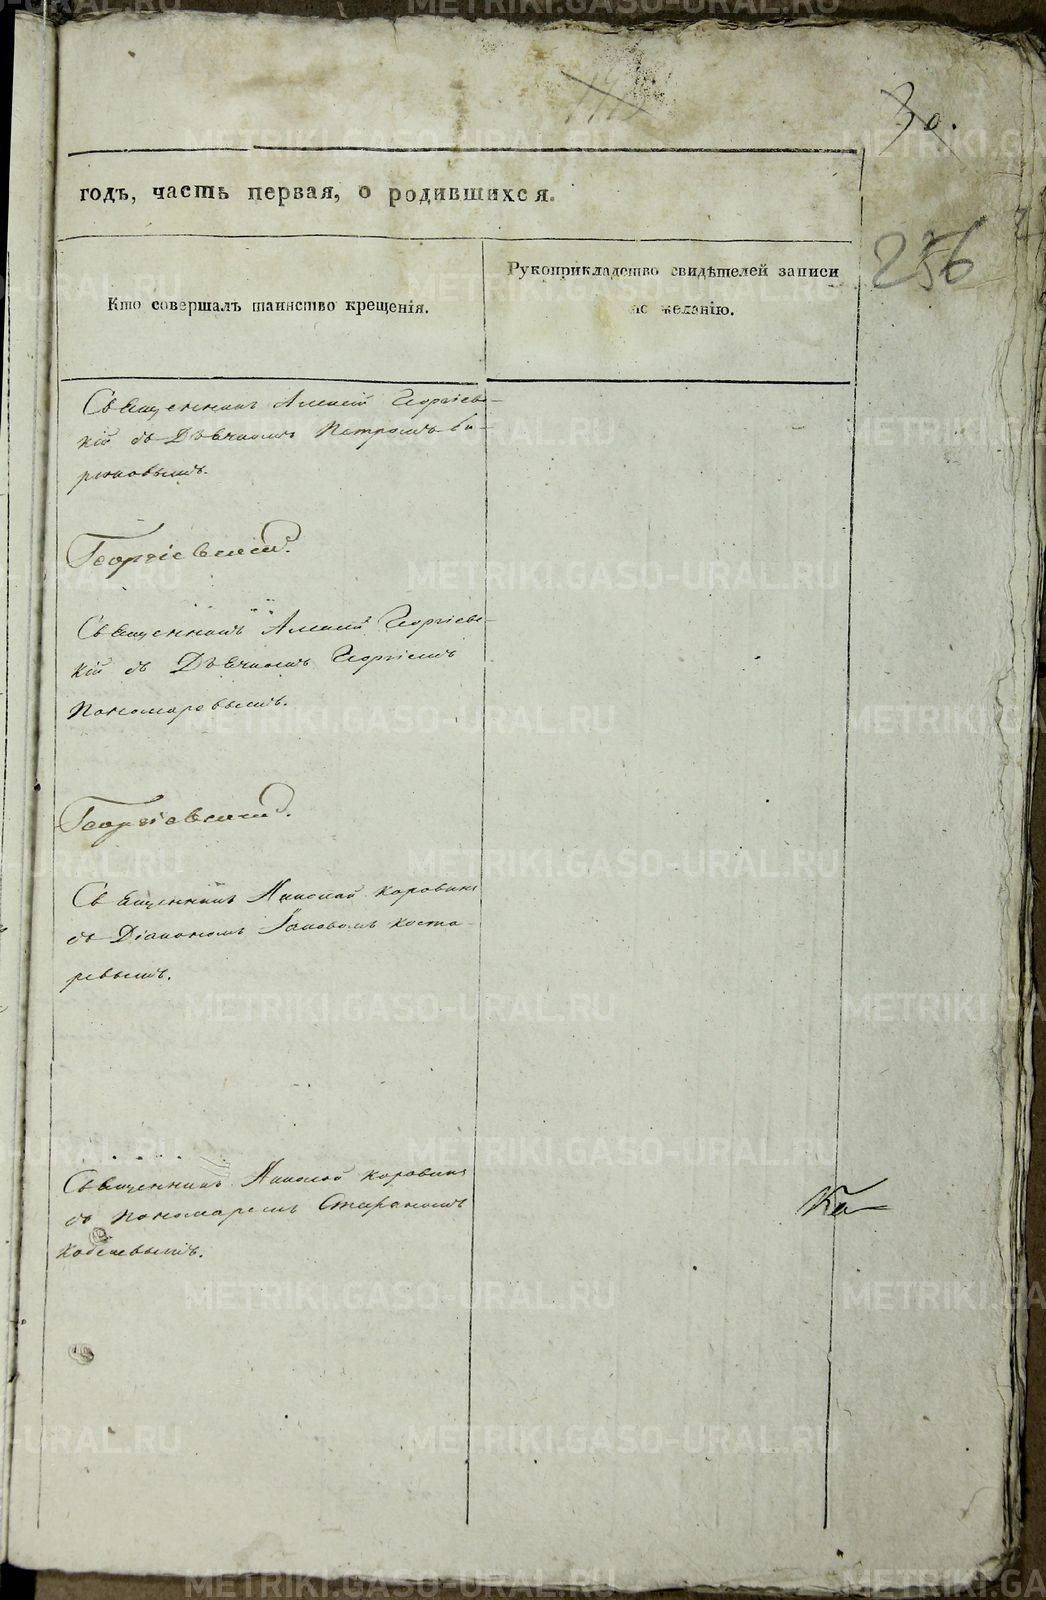 30.
годъ, часть первая, о родившихся.
256
Кто совершалъ таинство крещенія.
Рукоприкладство свидѣтелей записи
по желанію.
Священникъ Алексій Георгіевс-
кій съ Дьячкомъ Петромъ Би-
рюковымъ.
Георгіевскій.
Священникъ Алексій Георгіевс-
кій съ Дьячкомъ Георгіемъ
Пономаревымъ.
Георгіевскій.
Священникъ Николай Коровинъ
съ Діакономъ Іаковомъ Коста-
ревымъ.
Священникъ Николай Коровинъ
съ Пономаремъ Стефаномъ
Ка-
METRIKI.GASO-URAL.RU